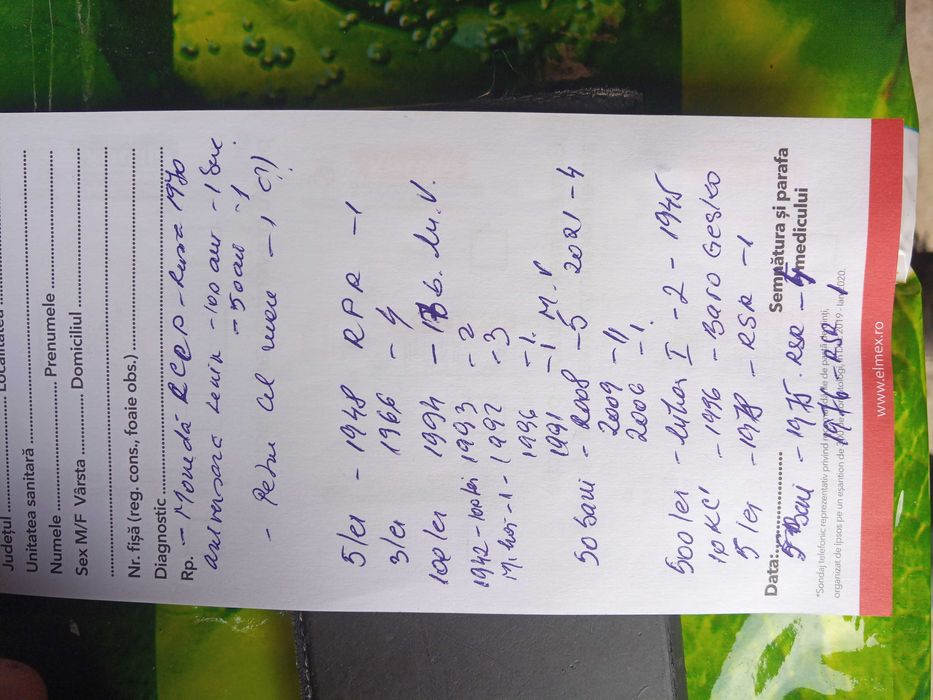 Județul
Localitatea
Unitatea sanitară
Numele Prenumele
Sex M/F Vârsta Domiciliul
Nr. fișă (reg. cons., foaie obs.)
Diagnostic
Rp. - Monedă - Rusa 1970
aniversara Lenin - 100 ani - 1
- 50 ani - 1
- Petru cel mare - 1 (?)
5 lei - 1948 RPR - 1
3 lei 1966 - 4
100 lei 1994 - M.V.
1942 - 100 lei 1993 - 2
Mihai - 1 - 1992 - 3
1996 - 1.
1991 - 1. M.V
50 bani - 2008 - 5 2021 - 4
2009 - 11
2006 - 1.
500 lei - Mihai I - 2 - 1945
10 KC - 1996 -
5 lei - 1978 - RSR - 1
Data: Semnătura și parafa
medicului
5 Bani - 1975 . RSR -
- RSR 1
*Sondaj telefonic reprezentativ privind
organizat de Ipsos pe un eșantion de
www.elmex.ro